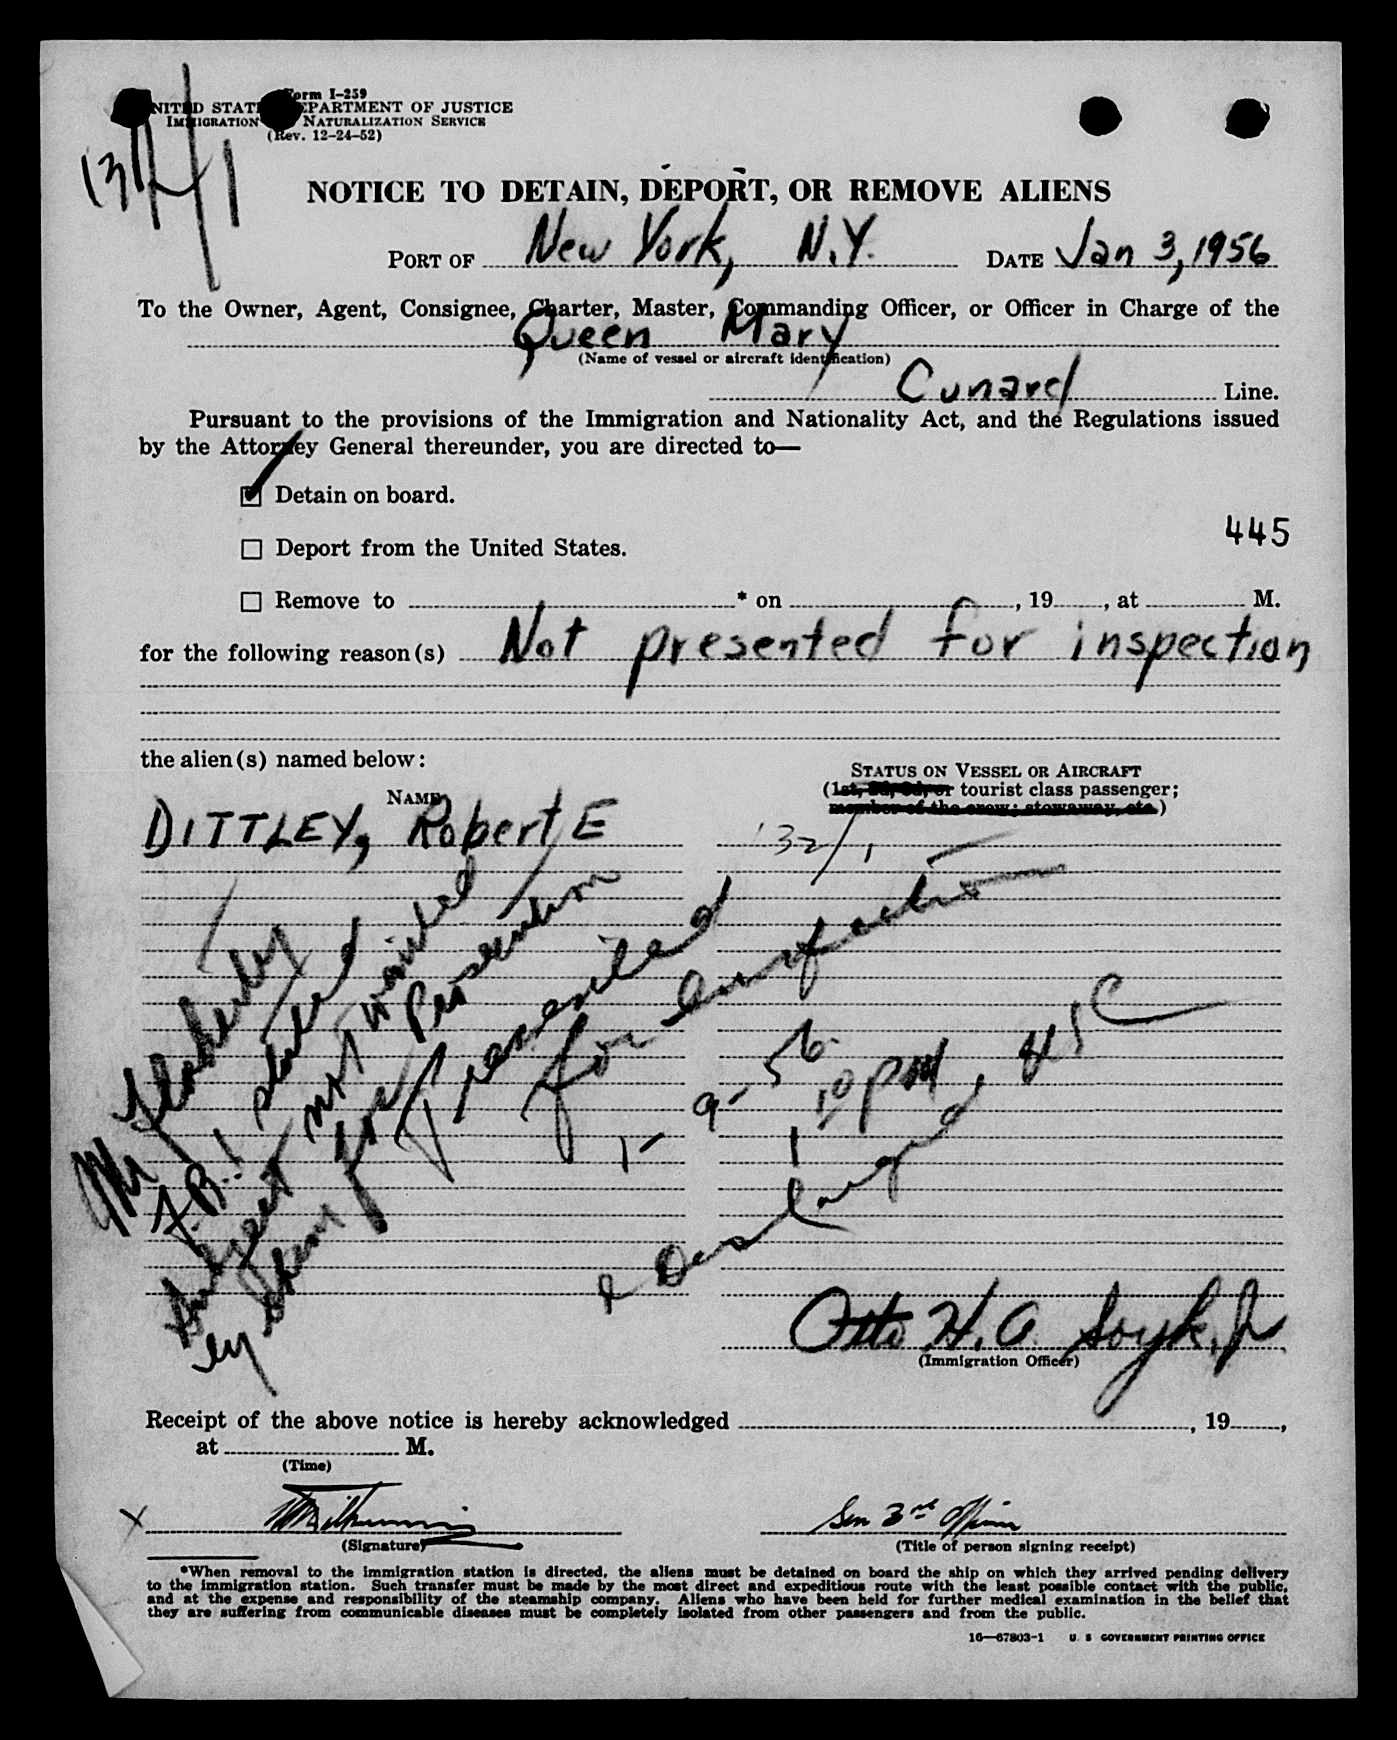 Form I-259
UNITED STATES DEPARTMENT OF JUSTICE
IMMIGRATION NATURALIZATION SERVICE
(Rev. 12-24-52)
NOTICE TO DETAIN, DEPORT, OR REMOVE ALIENS
PORT OF New York, N.Y. DATE Jan 3, 1956
To the Owner, Agent, Consignee, Charter, Master, Commanding Officer, or Officer in Charge of the
Queen Mary
(Name of vessel or aircraft identification)
Cunard Line.
Pursuant to the provisions of the Immigration and Nationality Act, and the Regulations issued
by the Attorney General thereunder, you are directed to—
Detain on board.
445
Deport from the United States.
Remove to * on , 19 , at M.
for the following reason(s) Not presented for inspection
the alien(s) named below:
STATUS ON VESSEL OR AIRCRAFT
NAME
(1st, 2d, 3d, or tourist class passenger;
member of the crew; stowaway, etc.)
DITTLEY, Robert E
132/1
Mr Flaherty
F.B.I stated
subject not wanted
by them for Prosecution
Presented
for Inspection
1-9-56
10 PM
& Discharged, 445C
Otto H. A. Soyk, Jr
(Immigration Officer)
Receipt of the above notice is hereby acknowledged , 19 ,
at M.
(Time)
X
Sen 3rd Officer
(Signature)
(Title of person signing receipt)
*When removal to the immigration station is directed, the aliens must be detained on board the ship on which they arrived pending delivery
to the immigration station. Such transfer must be made by the most direct and expeditious route with the least possible contact with the public,
and at the expense and responsibility of the steamship company. Aliens who have been held for further medical examination in the belief that
they are suffering from communicable diseases must be completely isolated from other passengers and from the public.
16—67803-1 U. S. GOVERNMENT PRINTING OFFICE